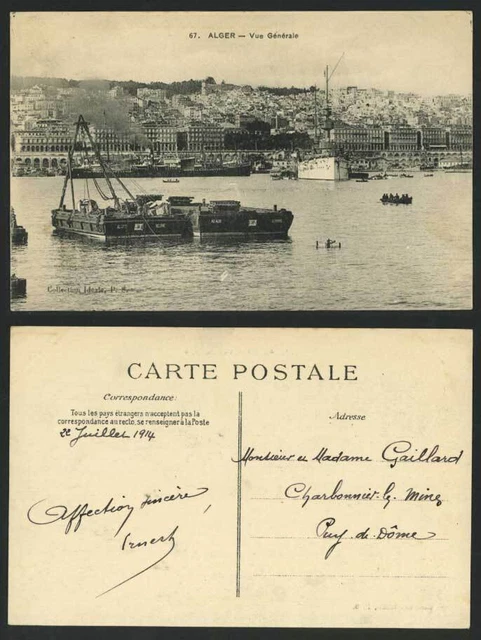 67. ALGER — Vue Générale
Collection Idéale, P. S.
CARTE POSTALE
Correspondance
Tous les pays étrangers n'acceptent pas la
correspondance au recto, se renseigner à la Poste
22 Juillet 1914
Affection sincère,
Ernest
Adresse
Monsieur et Madame Gaillard
Charbonnier-les-Mines
Puy-de-Dôme